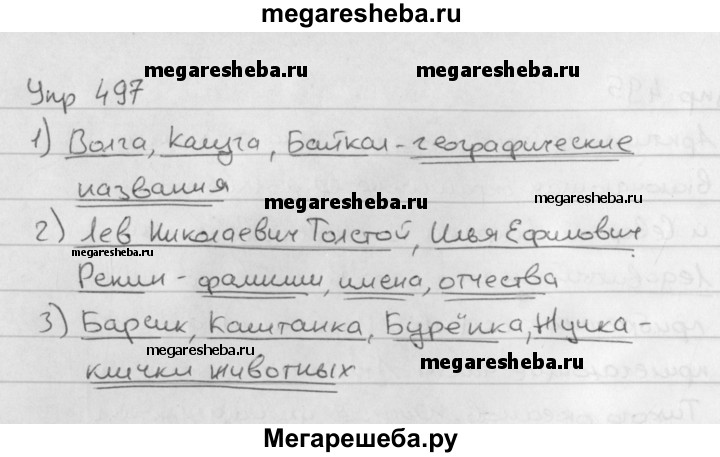 megaresheba.ru
megaresheba.ru megaresheba.ru
Упр 497
1) Волга, Калуга, Байкал - географические
названия
megaresheba.ru megaresheba.ru
2) Лев Николаевич Толстой, Илья Ефимович
megaresheba.ru
Репин - фамилии, имена, отчества
3) Барсик, Каштанка, Бурёнка, Жучка -
megaresheba.ru megaresheba.ru
клички животных
Мегарешеба.ру